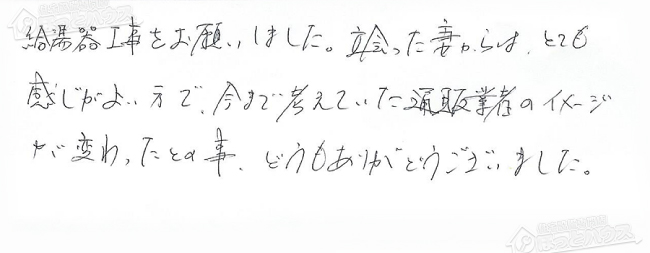 給湯器工事をお願いしました。立会った妻からは、とても
感じがよい方で、今まで考えていた通販業者のイメージ
が変わったとの事、どうもありがとうございました。